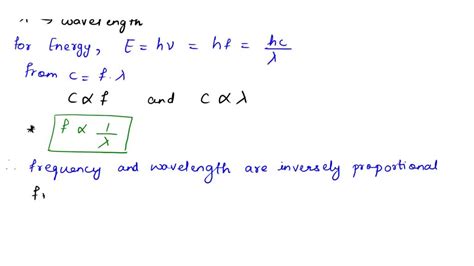 λ → wavelength
for Energy, E = hν = hf = hc/λ
from c = f.λ
C ∝ f and C ∝ λ
* f ∝ 1/λ
∴ frequency and wavelength are inversely proportional
f